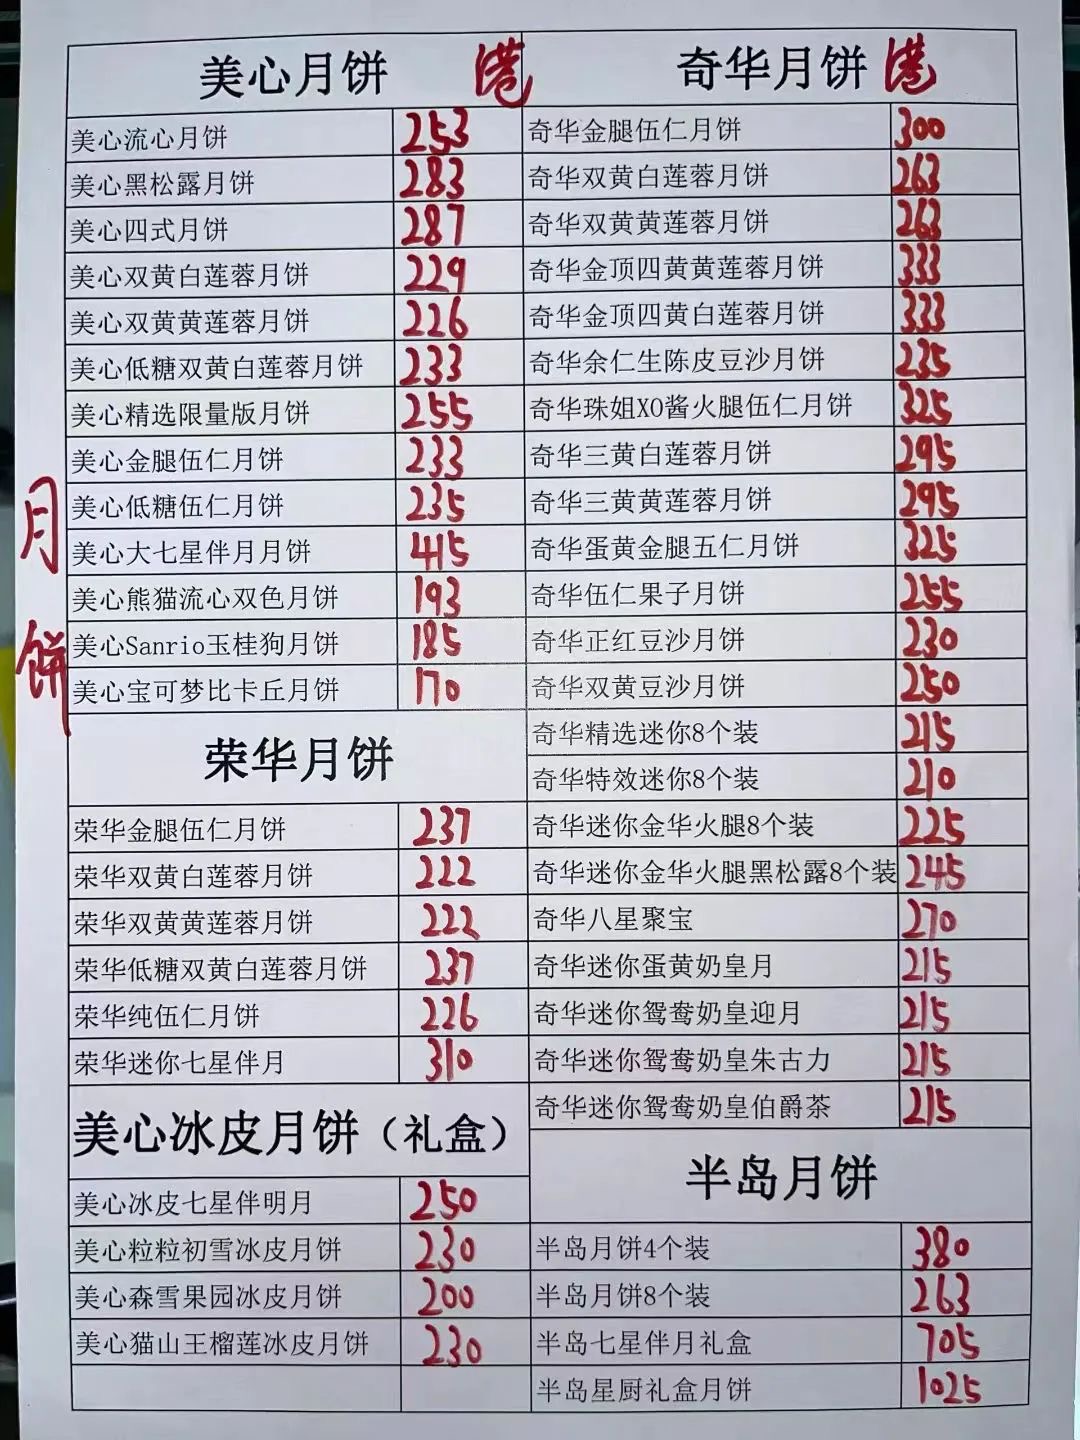 月饼
美心月饼 港
美心流心月饼 253
美心黑松露月饼 283
美心四式月饼 287
美心双黄白莲蓉月饼 229
美心双黄黄莲蓉月饼 226
美心低糖双黄白莲蓉月饼 233
美心精选限量版月饼 255
美心金腿伍仁月饼 233
美心低糖伍仁月饼 235
美心大七星伴月月饼 415
美心熊猫流心双色月饼 193
美心Sanrio玉桂狗月饼 185
美心宝可梦比卡丘月饼 170
荣华月饼
荣华金腿伍仁月饼 237
荣华双黄白莲蓉月饼 222
荣华双黄黄莲蓉月饼 222
荣华低糖双黄白莲蓉月饼 237
荣华纯伍仁月饼 226
荣华迷你七星伴月 310
美心冰皮月饼（礼盒）
美心冰皮七星伴明月 250
美心粒粒初雪冰皮月饼 230
美心森雪果园冰皮月饼 200
美心猫山王榴莲冰皮月饼 230
奇华月饼 港
奇华金腿伍仁月饼 300
奇华双黄白莲蓉月饼 263
奇华双黄黄莲蓉月饼 263
奇华金顶四黄黄莲蓉月饼 333
奇华金顶四黄白莲蓉月饼 333
奇华余仁生陈皮豆沙月饼 235
奇华珠姐XO酱火腿伍仁月饼 325
奇华三黄白莲蓉月饼 295
奇华三黄黄莲蓉月饼 295
奇华蛋黄金腿五仁月饼 325
奇华伍仁果子月饼 255
奇华正红豆沙月饼 230
奇华双黄豆沙月饼 250
奇华精选迷你8个装 215
奇华特效迷你8个装 210
奇华迷你金华火腿8个装 225
奇华迷你金华火腿黑松露8个装 245
奇华八星聚宝 270
奇华迷你蛋黄奶皇月 215
奇华迷你鸳鸯奶皇迎月 215
奇华迷你鸳鸯奶皇朱古力 215
奇华迷你鸳鸯奶皇伯爵茶 215
半岛月饼
半岛月饼4个装 380
半岛月饼8个装 263
半岛七星伴月礼盒 705
半岛星厨礼盒月饼 1025